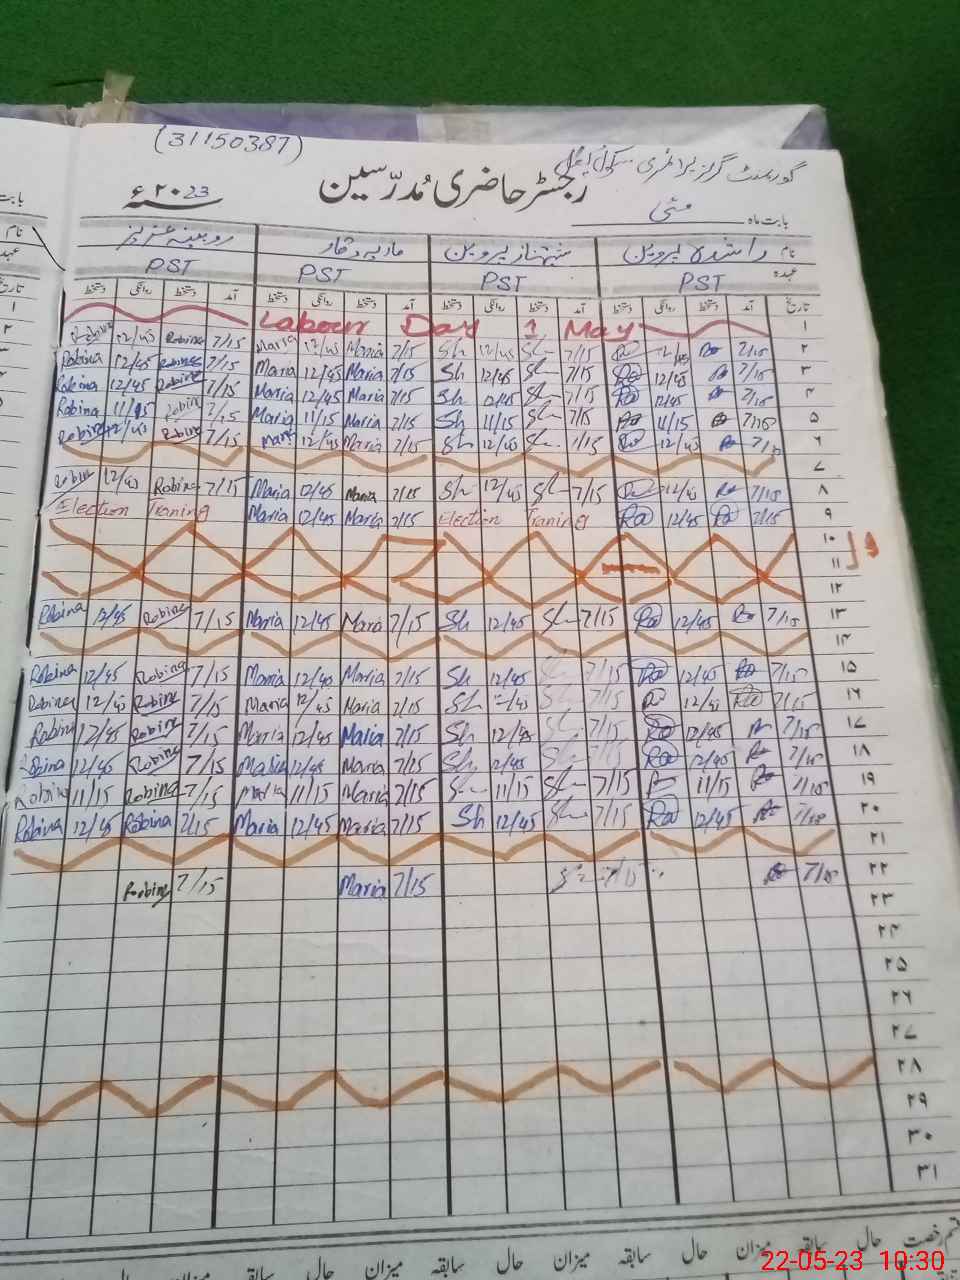 (31150387)
گورنمنٹ گرلز پرائمری سکول
رجسٹر حاضری مُدرّسین
۲۰23ء
بابت ماہ مئی
نام راشدہ پروین شہناز پروین ماریہ وقار روبینہ عزیز
عہدہ PST PST PST PST
تاریخ آمد دستخط روانگی دستخط آمد دستخط روانگی دستخط آمد دستخط روانگی دستخط آمد دستخط روانگی دستخط
Labour Day 1 May ۱
Robina 12/45 Robina 7/15 Maria 12/45 Maria 7/15 Sh 12/45 Sh 7/15 12/45 7/15 ۲
Robina 12/45 Robina 7/15 Maria 12/45 Maria 7/15 Sh 12/45 Sh 7/15 12/45 7/15 ۳
Robina 12/45 Robina 7/15 Maria 12/45 Maria 7/15 Sh 12/45 Sh 7/15 12/45 7/15 ۴
Robina 11/15 Robina 7/15 Maria 11/15 Maria 7/15 Sh 11/15 Sh 7/15 11/15 7/15 ۵
Robina 12/45 Robina 7/15 Maria 12/45 Maria 7/15 Sh 12/45 Sh 7/15 12/45 7/15 ۶
۷
Robina 12/45 Robina 7/15 Maria 12/45 Maria 7/15 Sh 12/45 Sh 7/15 12/45 7/15 ۸
Election Traning Maria 12/45 Maria 7/15 Election Traning Ra 12/45 Ra 7/15 ۹
۱۰
۱۱
۱۲
Robina 12/45 Robina 7/15 Maria 12/45 Maria 7/15 Sh 12/45 Sh 7/15 Ra 12/45 Ra 7/15 ۱۳
۱۴
Robina 12/45 Robina 7/15 Maria 12/45 Maria 7/15 Sh 12/45 Sh 7/15 Ra 12/45 Ra 7/15 ۱۵
Robina 12/45 Robina 7/15 Maria 12/45 Maria 7/15 Sh 12/45 Sh 7/15 Ra 12/45 Ra 7/15 ۱۶
Robina 12/45 Robina 7/15 Maria 12/45 Maria 7/15 Sh 12/45 Sh 7/15 Ra 12/45 7/15 ۱۷
Robina 12/45 Robina 7/15 Maria 12/45 Maria 7/15 Sh 12/45 Sh 7/15 Ra 12/45 7/15 ۱۸
Robina 11/15 Robina 7/15 Maria 11/15 Maria 7/15 Sh 11/15 Sh 7/15 11/15 7/15 ۱۹
Robina 12/45 Robina 7/15 Maria 12/45 Maria 7/15 Sh 12/45 Sh 7/15 Ra 12/45 7/15 ۲۰
۲۱
Robina 7/15 Maria 7/15 7/15 7/15 ۲۲
۲۳
۲۴
۲۵
۲۶
۲۷
۲۸
۲۹
۳۰
۳۱
قسم رخصت حال سابقہ میزان حال سابقہ میزان حال سابقہ میزان حال
22-05-23 10:30